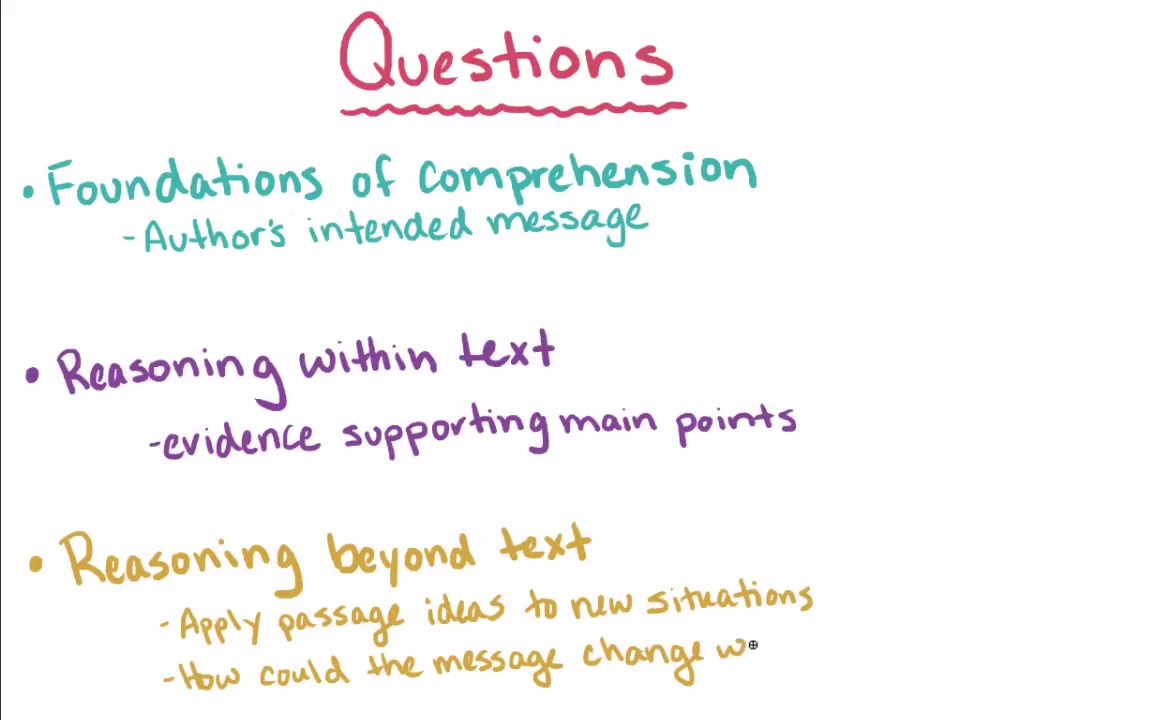 Questions
• Foundations of Comprehension
- Author's intended message
• Reasoning within text
-evidence supporting main points
• Reasoning beyond text
- Apply passage ideas to new situations
-How could the message change w